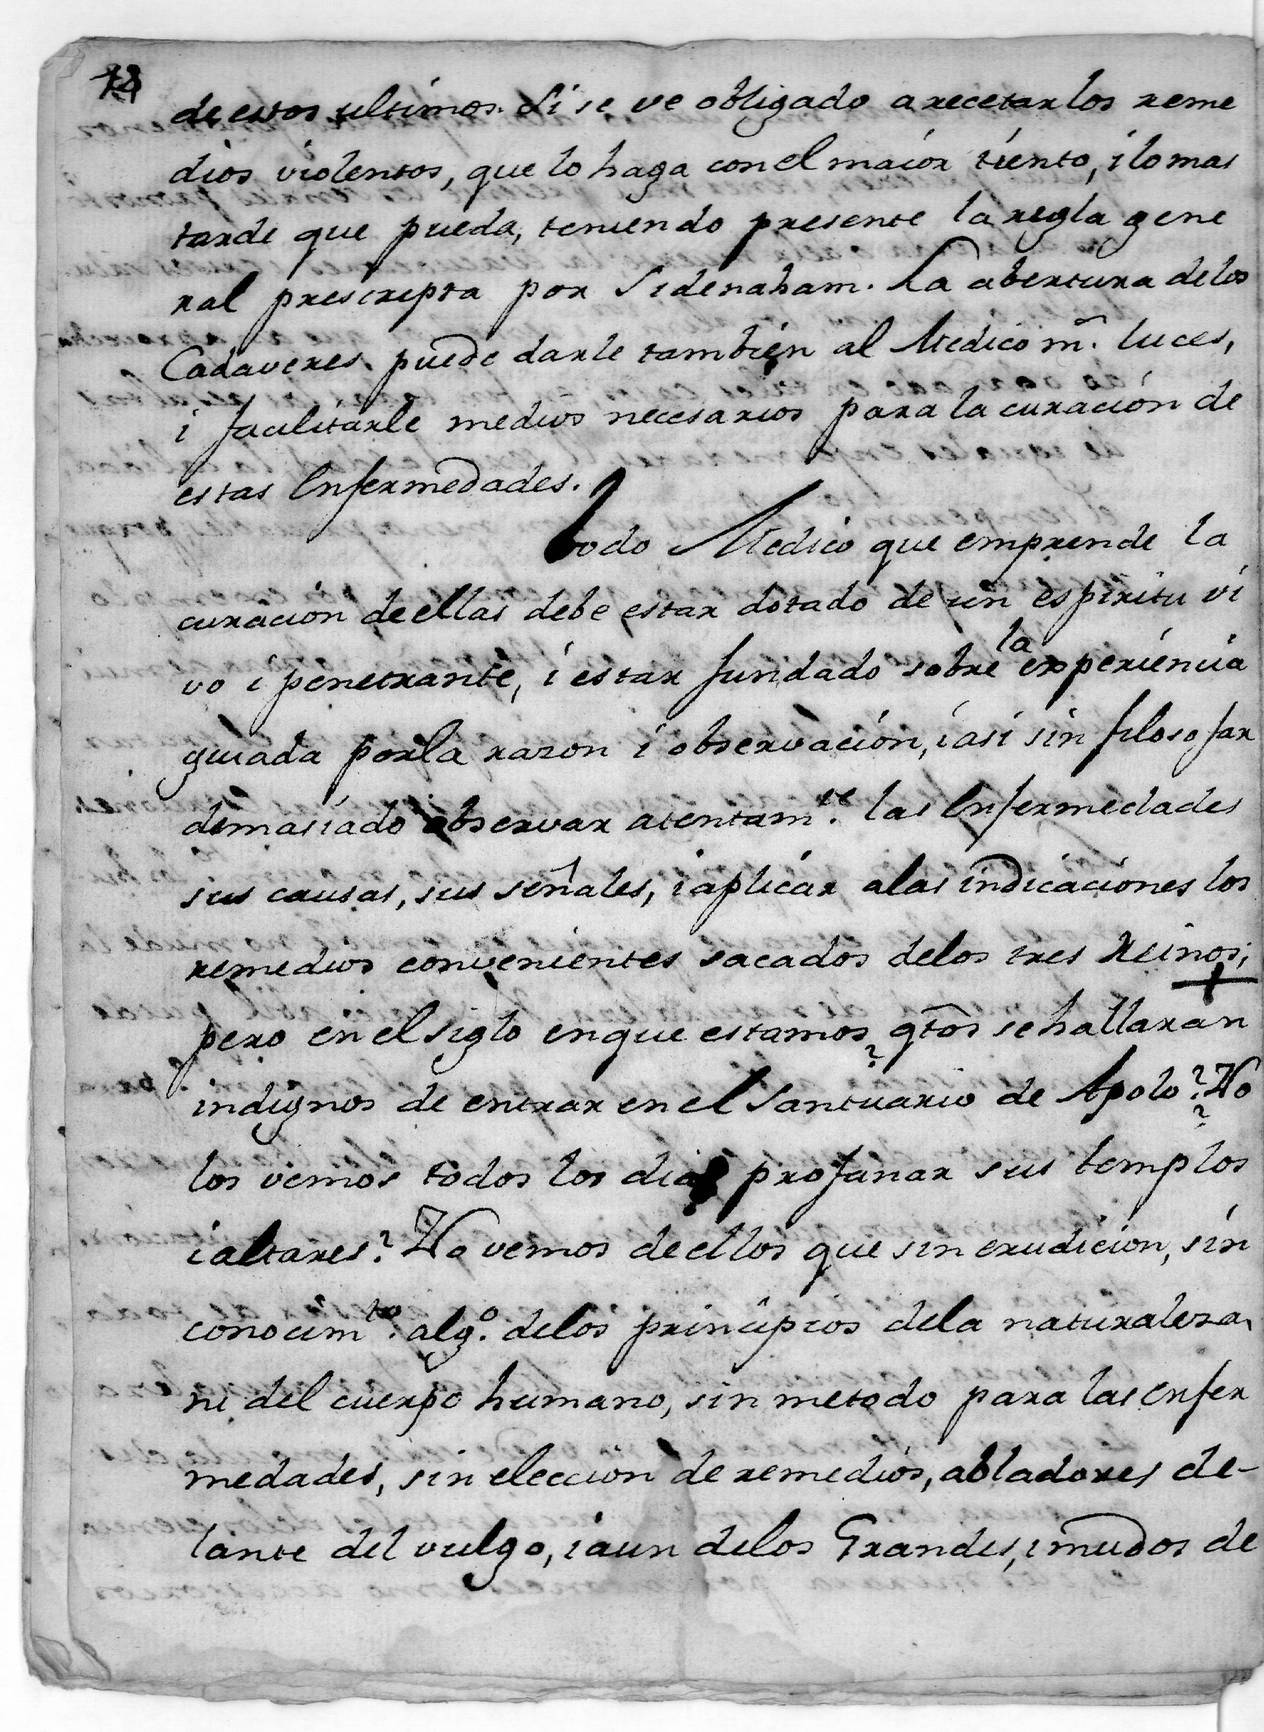 de estos ultimos. Si se ve obligado a recetar los reme
dios violentos, que lo haga con el maior tiento, i lo mas
tarde que pueda, teniendo presente la regla gene
ral prescripta por Sidenaham. La abertura de los
Cadaveres puede darle tambien al Medico m.s luces,
i facilitarle medios necesarios para la curación de
estas Enfermedades.
Todo Medico que emprende la
curación de ellas debe estar dotado de un espiritu vi
vo i penetrante, i estar fundado sobre la experiencia
guiada por la razon i observación, i asi sin filosofar
demasiado observar atentam.te las Enfermedades
sus causas, sus señales, i aplicar a las indicaciones los
remedios convenientes sacados de los tres Reinos;
pero en el siglo en que estamos qtos se hallaran
indignos de entrar en el Santuario de Apolo? No
los vemos todos los dias profanar sus templos
i altares? No vemos de ellos que sin erudicion, sin
conocim.to alg.o de los principios de la naturaleza
ni del cuerpo humano, sin metodo para las enfer
medades, sin elección de remedios, abladores de-
lante del vulgo, i aun de los Grandes, i mudos de